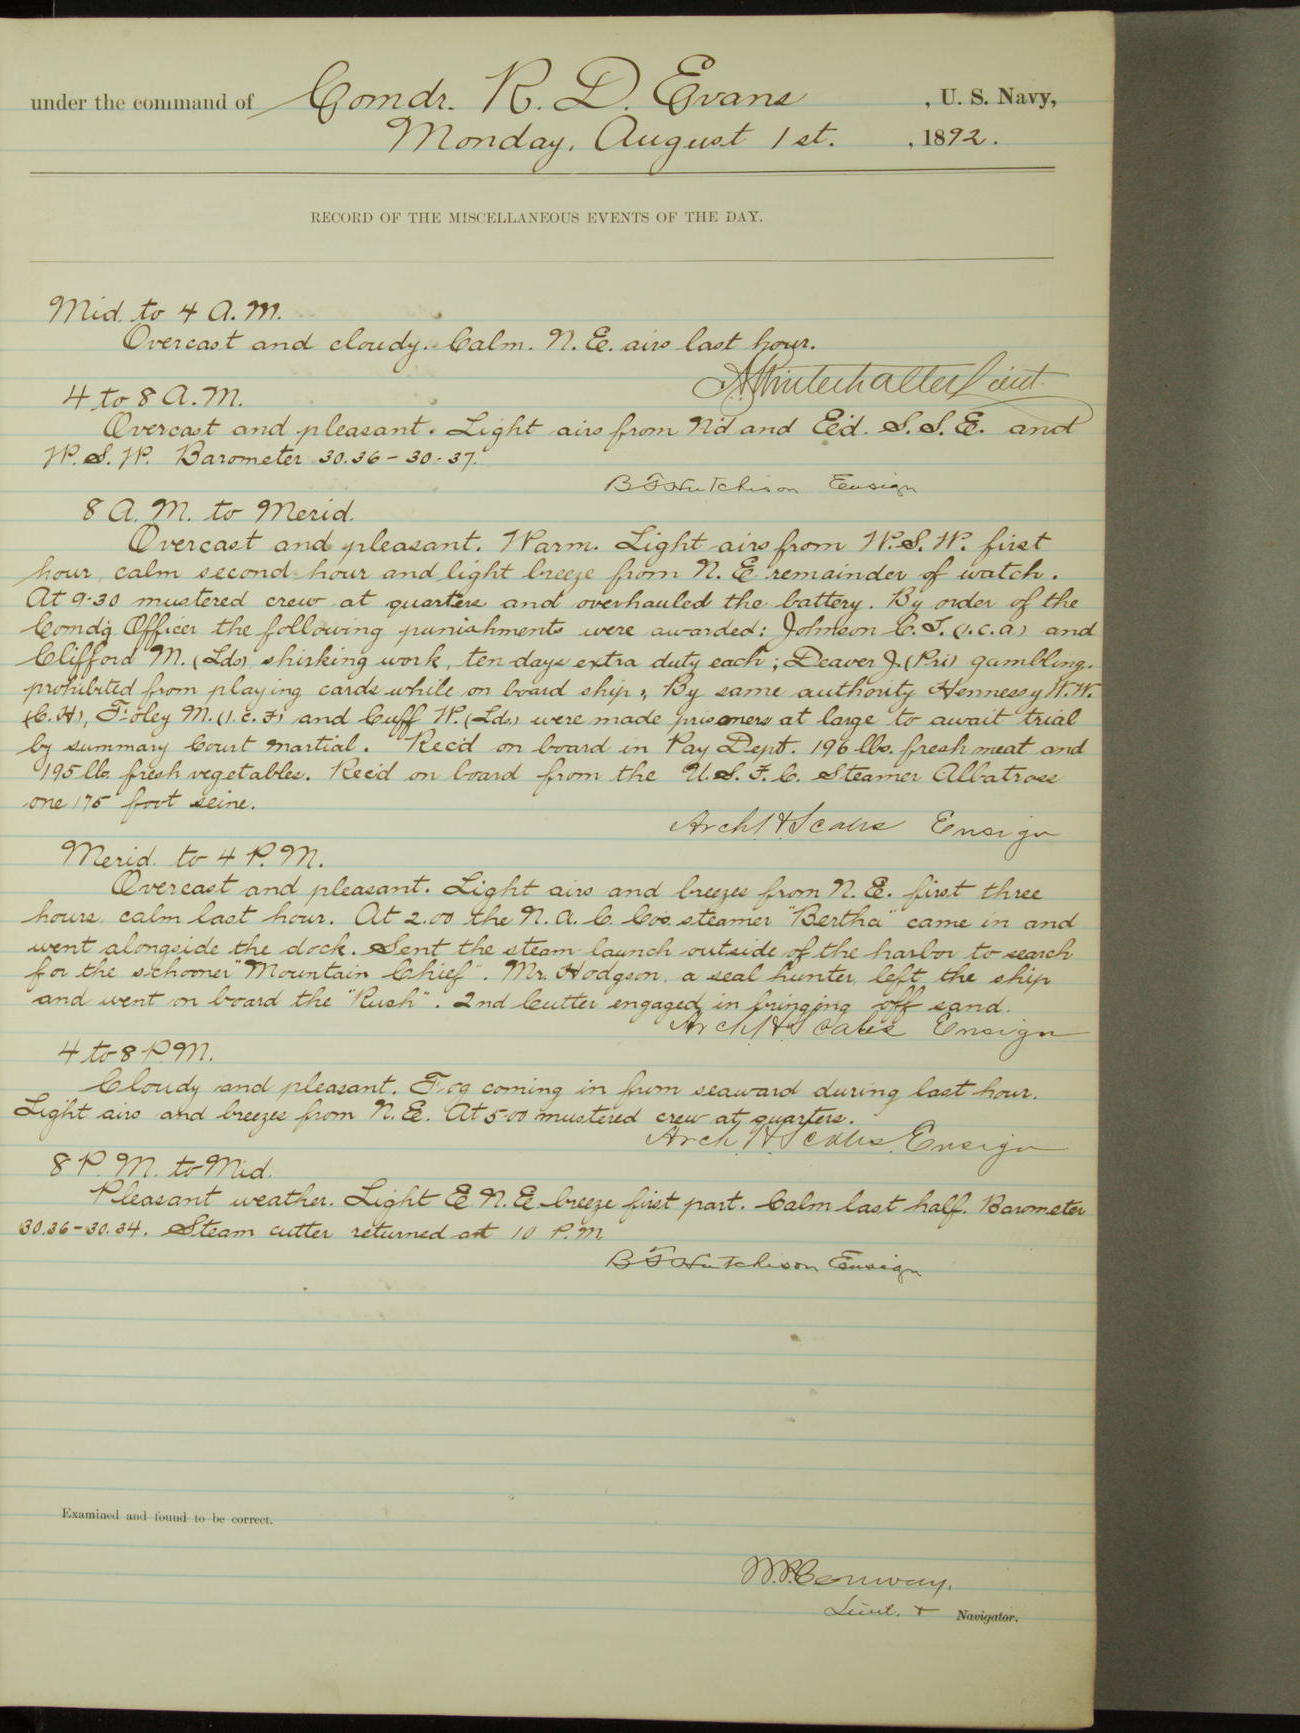 under the command of Comdr. R. D. Evans, U. S. Navy,
Monday, August 1st., 1892.
RECORD OF THE MISCELLANEOUS EVENTS OF THE DAY.
Mid. to 4 A.M.
Overcast and cloudy. Calm. N.E. airs last hour.
Lieut.
4 to 8 A.M.
Overcast and pleasant. Light airs from N'd and E'd. S.S.E. and
W.S.W. Barometer 30.36-30.37.
B F Hutchison Ensign
8 A.M. to Merid.
Overcast and pleasant. Warm. Light airs from W.S.W. first
hour, calm second hour and light breeze from N.E. remainder of watch.
At 9.30 mustered crew at quarters and overhauled the battery. By order of the
Comd'g Officer the following punishments were awarded: Johnson C.T. (s.c.a) and
Clifford M. (Lds) shirking work, ten days extra duty each; Deaver J. (Pri) gambling.
prohibited from playing cards while on board ship; By same authority Hennessy W.W.
(C.H), Foley M. (1.c.F) and Cuff W. (Lds.) were made prisoners at large to await trial
by summary Court Martial. Rec'd on board in Pay Dept. 196 lbs. fresh meat and
195 lbs. fresh vegetables. Rec'd on board from the U.S.F.C. Steamer Albatross
one 175 foot seine.
Arch H Scales Ensign
Merid. to 4 P.M.
Overcast and pleasant. Light airs and breezes from N.E. first three
hours, calm last hour. At 2.00 the N.A.C. Co's. steamer "Bertha" came in and
went alongside the dock. Sent the steam launch outside of the harbor to search
for the schooner "Mountain Chief". Mr. Hodgson, a seal hunter, left the ship
and went on board the "Rush". 2nd Cutter engaged in bringing off sand.
Arch H Scales Ensign
4 to 8 P.M.
Cloudy and pleasant. Fog coming in from seaward during last hour.
Light airs and breezes from N.E. At 5.00 mustered crew at quarters.
Arch. H. Scales. Ensign
8 P.M. to Mid.
Pleasant weather. Light E.N.E. breeze first part. Calm last half. Barometer
30.36-30.34. Steam cutter returned at 10 P.M
B F Hutchison Ensign
Examined and found to be correct.
W.P. Conway,
Lieut. & Navigator.